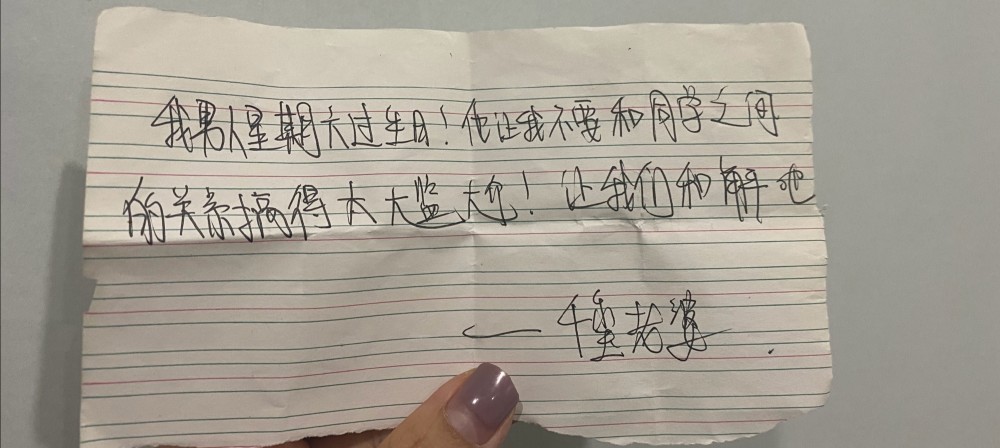 我男人星期六过生日！他让我不要和同学之间
的关系搞得太尴尬！让我们和解吧
——千玺老婆